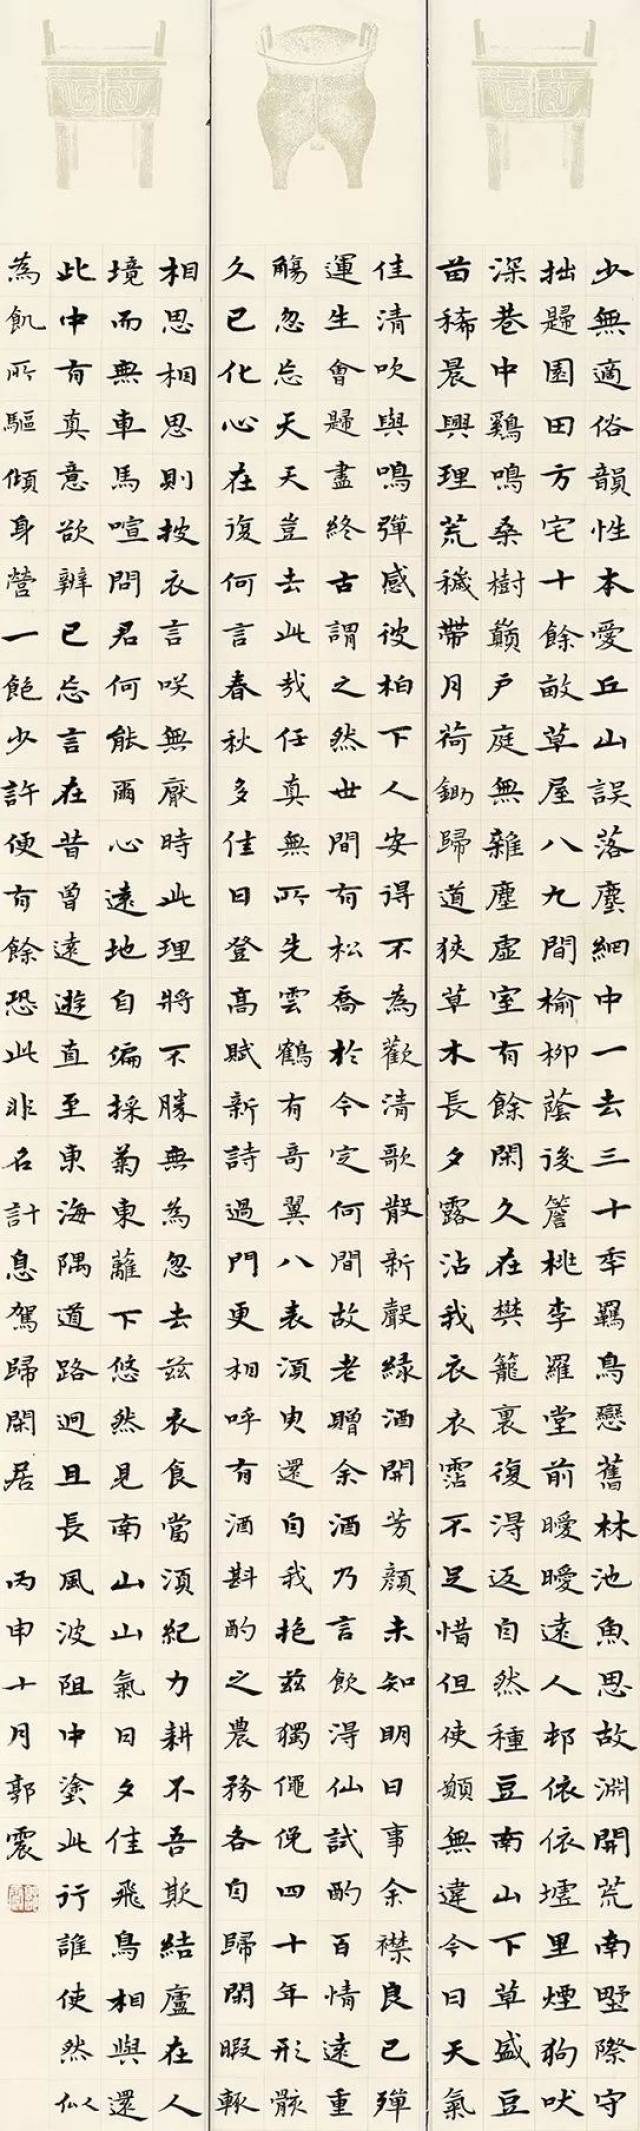 少無適俗韻性本愛丘山誤落塵網中一去三十秊羈鳥戀舊林池魚思故淵開荒南野際守
拙歸園田方宅十餘畝草屋八九間榆柳蔭後簷桃李羅堂前曖曖遠人邨依依墟里煙狗吠
深巷中鷄鳴桑樹巔戶庭無雜塵虛室有餘閑久在樊籠裏復得返自然種豆南山下草盛豆
苗稀晨興理荒穢帶月荷鋤歸道狹草木長夕露沾我衣衣霑不足惜但使願無違今日天氣
佳清吹與鳴彈感彼柏下人安得不為歡清歌散新聲綠酒開芳顏未知明日事余襟良已殫
運生會歸盡終古謂之然世間有松喬於今定何間故老贈余酒乃言飲得仙試酌百情遠重
觴忽忘天天豈去此哉任真無所先雲鶴有奇翼八表須臾還自我抱茲獨僶俛四十年形骸
久已化心在復何言春秋多佳日登高賦新詩過門更相呼有酒斟酌之農務各自歸閑暇輒
相思相思則披衣言咲無厭時此理將不勝無為忽去茲衣食當須紀力耕不吾欺結廬在人
境而無車馬喧問君何能爾心遠地自偏採菊東籬下悠然見南山山氣日夕佳飛鳥相與還
此中有真意欲辨已忘言在昔曾遠遊直至東海隅道路迥且長風波阻中塗此行誰使然似
為飢所驅傾身營一飽少許便有餘恐此非名計息駕歸閑居 丙申十月郭震